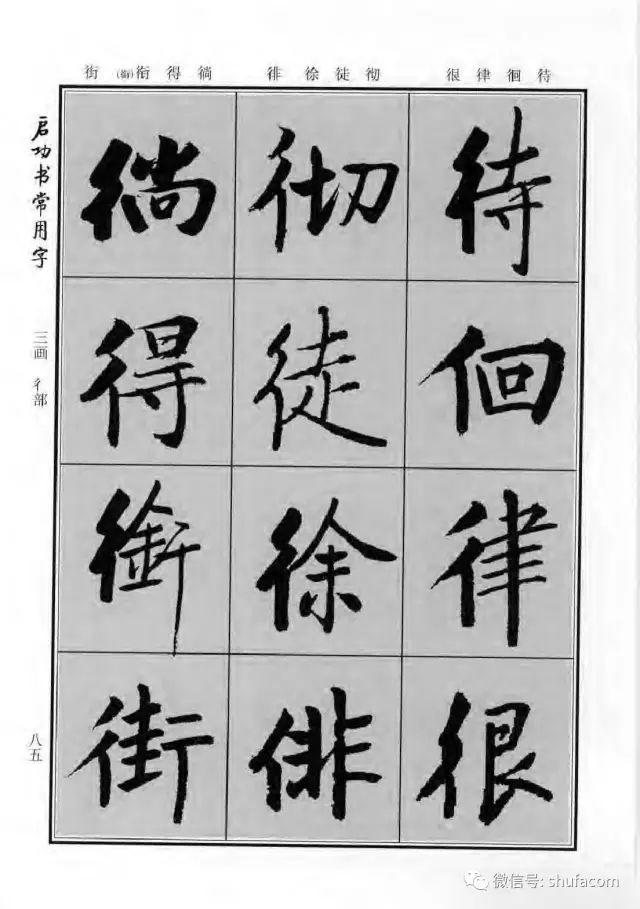 待徊律很 彻徒徐徘 徜得衔(銜)街
待徊律很
彻徒徐徘
徜得銜街
启功书常用字
三画 彳部
八五
微信号: shufacom